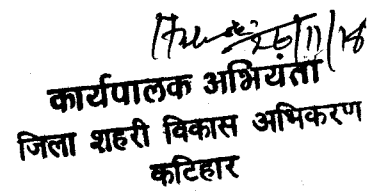 26/11/18
कार्यपालक अभियंता
जिला शहरी विकास अभिकरण
कटिहार